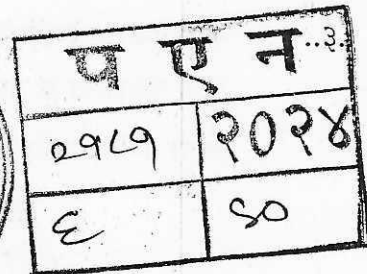 प ए न ..३.
२१८१ २०२४
६ ९०